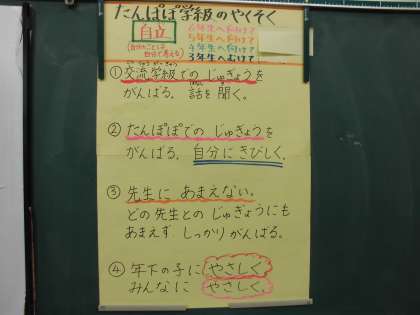 たんぽぽ学級のやくそく
自立
自分のことは
自分で考える
6年生へ向けて
5年生へ向けて
4年生へ向けて
3年生へむけて
①交流学級での じゅぎょうを
がんばる。話を聞く。
②たんぽぽでの じゅぎょうを
がんばる。自分にきびしく。
③先生に あまえない。
どの先生との じゅぎょうにも
あまえず しっかりがんばる。
④年下の子に やさしく
みんなに やさしく。